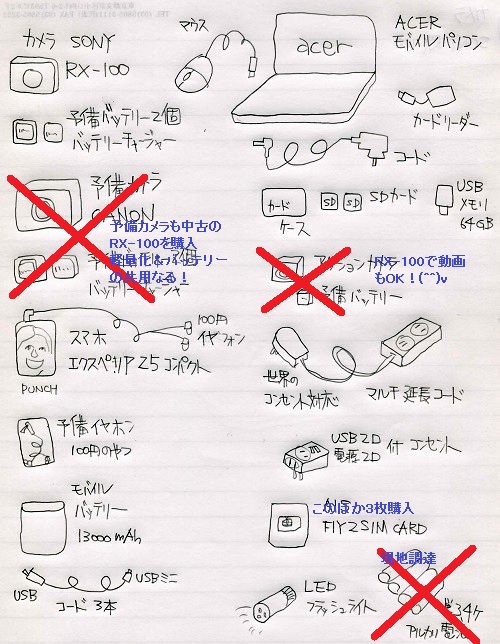 カメラ SONY
RX-100
マウス
acer
ACER
モバイルパソコン
カードリーダー
予備バッテリー2個
バッテリーチャージャー
コード
予備カメラ
CANON
予備カメラも中古の
RX-100を購入
軽量化&バッテリー
の共用なる！
カード
ケース
SD
SD
SDカード
USB
メモリ
64GB
RX-100で動画
もOK！(^^)v
予備バッテリー
100円
イヤフォン
スマホ
エクスペリア Z5 コンパクト
PUNCH
世界の
コンセント対応
マルチ延長コード
予備イヤホン
100円のやつ
USB 2口
電源 2口
付 コンセント
モバイル
バッテリー
13000mAh
このほか3枚購入
AIS
FLY 2 SIM CARD
現地調達
USB
USBミニ
コード 3本
LED
フラッシュライト
単3 4ケ
アルカリ電池